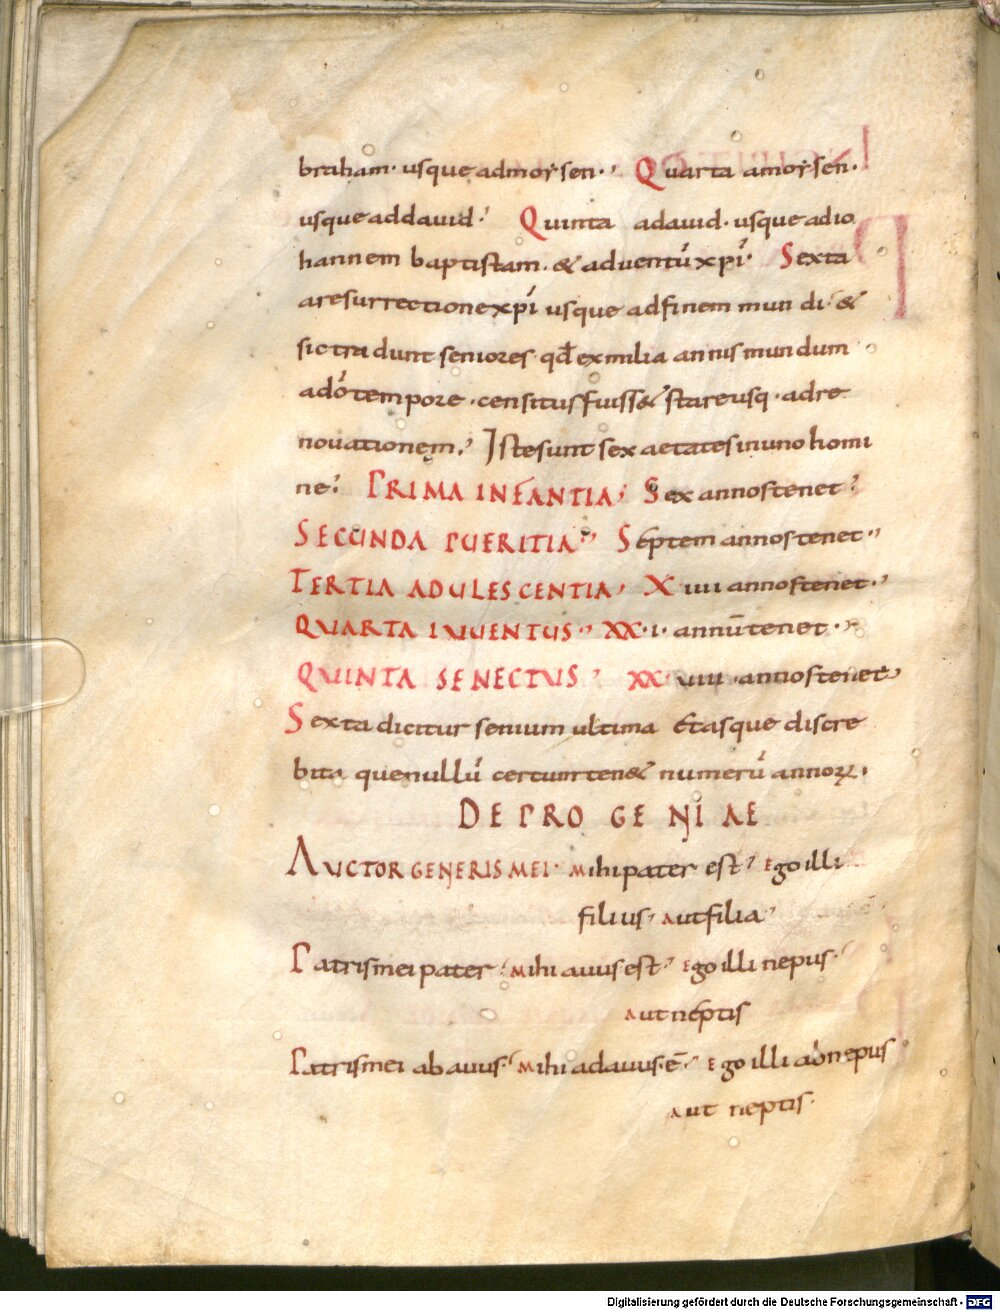 braham· usque admoẏsen·, Quarta amoẏsen·
usque addauid·, Quinta adauid· usque adio
hannem baptistam· & aduentū xp̄i· Sexta
aresurrectione xp̄i usque adfinem mundi·, &
sic tradunt seniores· qd̄ ex milia annis mundum
adō tempore· censitus fuiss& stareusq· adre
nouationem·, Iste sunt sex aetates inuno homi
ne·, PRIMA INFANTIA·, Sex annos tenet·,
SECUNDA PUERITIA·, Septem annos tenet·,
TERTIA ADULESCENTIA·, Xiiii annos tenet·,
QUARTA IUUENTUS·, XX·i· annū tenet·,
QUINTA SENECTUS·, XX uiiii annos tenet·,
Sexta dicitur senium ultima Etasque discre
bita que nullū certum ten& numerū annoꝝ·
DE PROGENIAE
AUCTOR GENERIS MEI· Mihi pater est·, Ego illi
filius· Aut filia·,
Patris mei pater·, Mihi auus est·, Ego illi nepus·,
Aut neptis
Patris mei abauus·, Mihi adauus·ē·, Ego illi adnepus
Aut neptis·
Digitalisierung gefördert durch die Deutsche Forschungsgemeinschaft - DFG